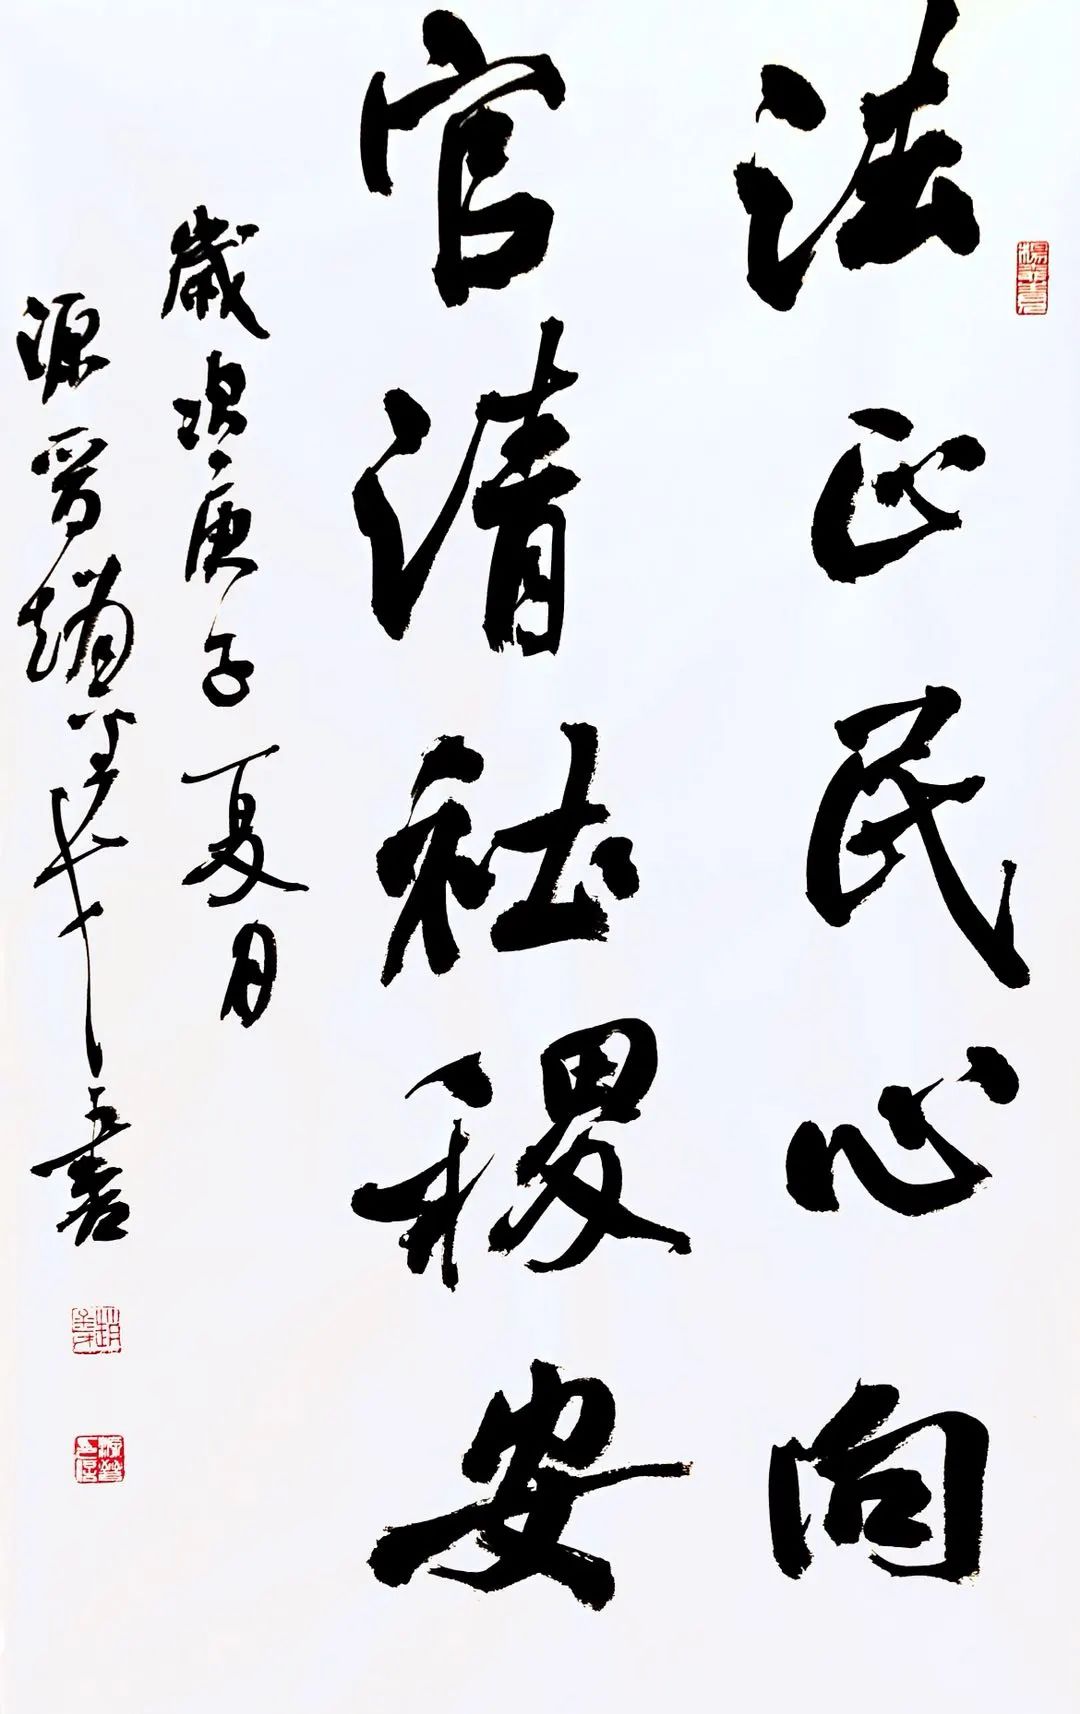 法正民心向
官清社稷安
歲次庚子夏月
源晋趙
書